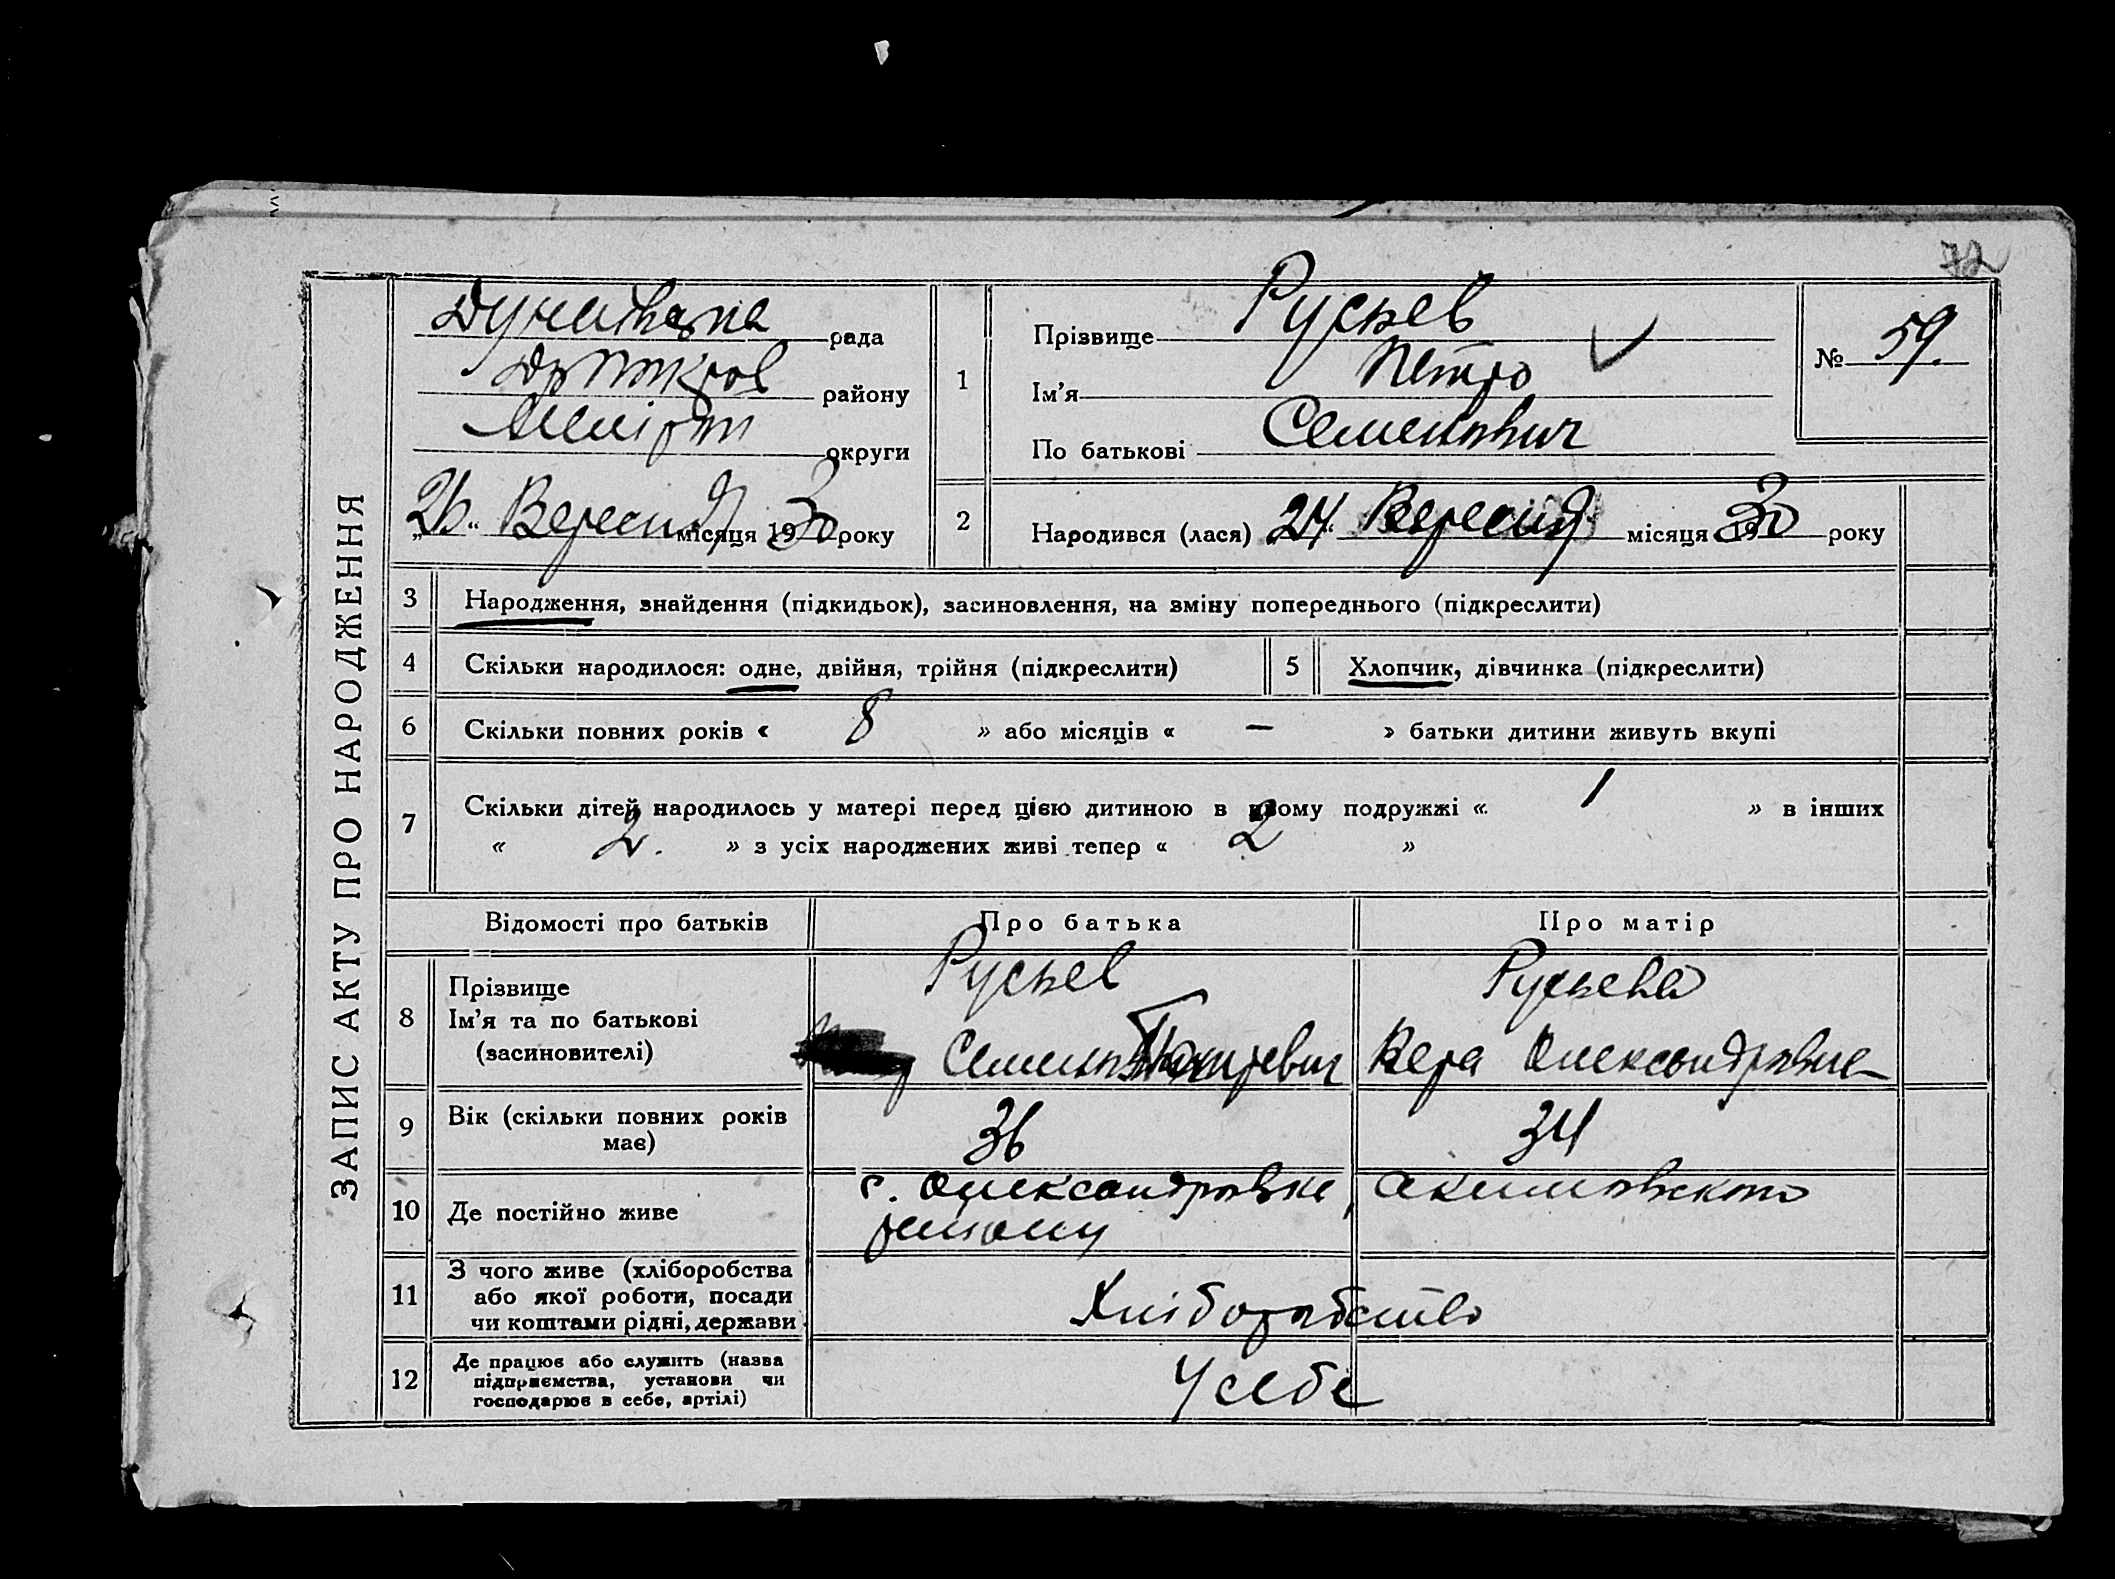 72
ЗАПИС АКТУ ПРО НАРОДЖЕННЯ
Дунаївська рада
району
Меліт округи
„26“ Вересня місяця 1930 року
1 Прізвище Русьев
Ім’я Петро
По батькові Семенович
№ 59.
2 Народився (лася) „24“ Вересня місяця 1930 року
3 Народження, знайдення (підкидьок), засиновлення, на зміну попереднього (підкреслити)
4 Скільки народилося: одне, двійня, трійня (підкреслити)
5 Хлопчик, дівчинка (підкреслити)
6 Скільки повних років « 8 » або місяців « – » батьки дитини живуть вкупі
7 Скільки дітей народилось у матері перед цією дитиною в цьому подружжі « 1 » в інших
« 2. » з усіх народжених живі тепер « 2 »
Відомості про батьків Про батька Про матір
8 Прізвище Русьев Русьева
Ім’я та по батькові Семен Петрович Вера Олександровна
(засиновителі)
9 Вік (скільки повних років 36 34
має)
10 Де постійно живе с. Олександровка, Акимовского
району
11 З чого живе (хліборобства
або якої роботи, посади Хліборобство
чи коштами рідні, держави
12 Де працює або служить (назва
підприємства, установи чи У себе
господарює в себе, артілі)